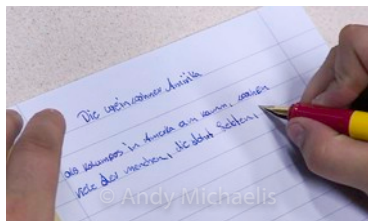 Die urein wohner Amirika
als Kolumpos in Amirika an kamm, waren
viele der menschen, die dort lebten,
© Andy Michaelis